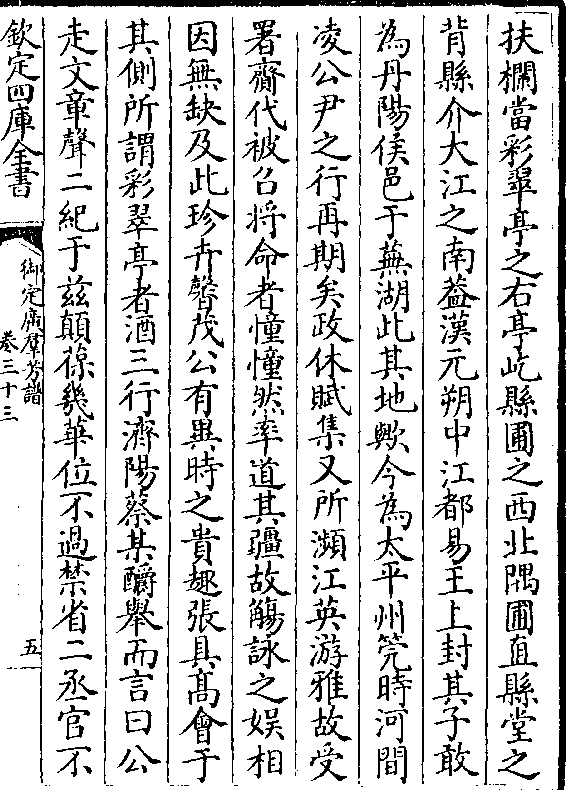 扶欄當彩翠亭之右亭屹縣圃之西北隅圃直縣堂之
背縣介大江之南葢漢元朔中江都易王上封其子敢
為丹陽侯邑于蕪湖此其地歟今為太平州筦時河間
凌公尹之行再期矣政休賦集又所瀕江英游雅故受
署齋代被召將命者憧憧然率道其疆故觴詠之娱相
因無缺及此珍卉馨茂公有異時之貴趣張具髙會于
其側所謂彩翠亭者酒三行濟陽蔡某釂舉而言曰公
走文章聲二紀于兹顛葆幾華位不過禁省二丞官不
欽定四庫全書
御定廣羣芳譜
卷三十三
五